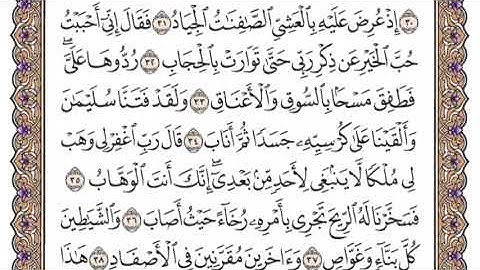 ٣٠ إِذْ عُرِضَ عَلَيْهِ بِٱلْعَشِىِّ ٱلصَّٰفِنَٰتُ ٱلْجِيَادُ ٣١ فَقَالَ إِنِّىٓ أَحْبَبْتُ
حُبَّ ٱلْخَيْرِ عَن ذِكْرِ رَبِّى حَتَّىٰ تَوَارَتْ بِٱلْحِجَابِ ٣٢ رُدُّوهَا عَلَىَّۖ
فَطَفِقَ مَسْحًۢا بِٱلسُّوقِ وَٱلْأَعْنَاقِ ٣٣ وَلَقَدْ فَتَنَّا سُلَيْمَٰنَ
وَأَلْقَيْنَا عَلَىٰ كُرْسِيِّهِۦ جَسَدًا ثُمَّ أَنَابَ ٣٤ قَالَ رَبِّ ٱغْفِرْ لِى وَهَبْ
لِى مُلْكًا لَّا يَنۢبَغِى لِأَحَدٍ مِّنۢ بَعْدِىٓۖ إِنَّكَ أَنتَ ٱلْوَهَّابُ ٣٥
فَسَخَّرْنَا لَهُ ٱلرِّيحَ تَجْرِى بِأَمْرِهِۦ رُخَآءً حَيْثُ أَصَابَ ٣٦ وَٱلشَّيَٰطِينَ
كُلَّ بَنَّآءٍ وَغَوَّاصٍ ٣٧ وَءَاخَرِينَ مُقَرَّنِينَ فِى ٱلْأَصْفَادِ ٣٨ هَٰذَا